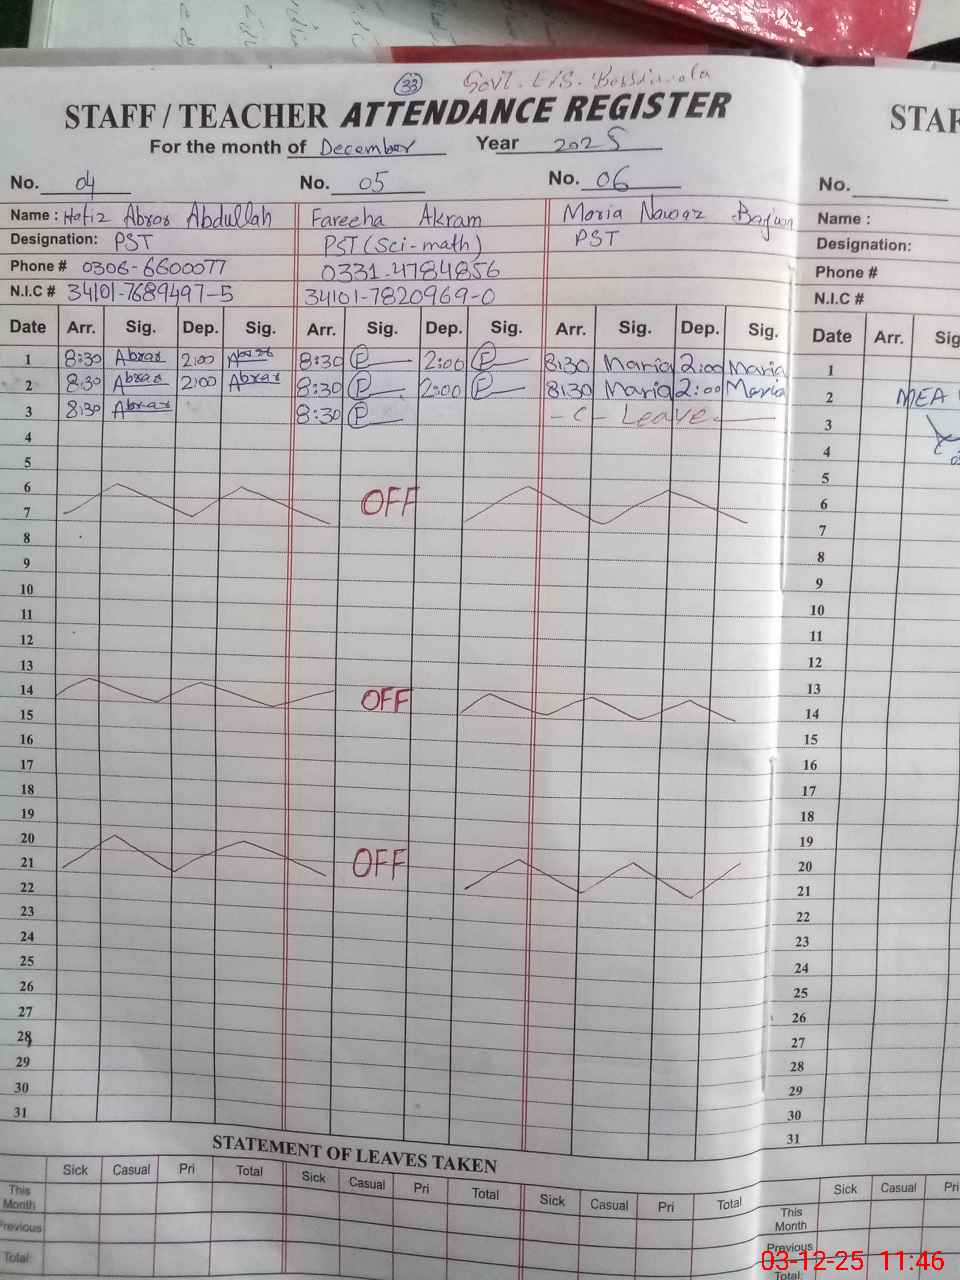 33 Govt. E/S.
STAFF / TEACHER ATTENDANCE REGISTER
For the month of December Year 2025
No. 04 No. 05 No. 06
Name : Hafiz Abrar Abdullah Fareeha Akram Maria Nawaz
Designation: PST PST (Sci-math) PST
Phone # 0306-6600077 0331-4784856
N.I.C # 34101-7689497-5 34101-7820969-0
Date Arr. Sig. Dep. Sig. Arr. Sig. Dep. Sig. Arr. Sig. Dep. Sig.
1 8:30 Abrar 2:00 Abrar 8:30 F 2:00 F 8:30 Maria 2:00 Maria
2 8:30 Abrar 2:00 Abrar 8:30 F 2:00 F 8:30 Maria 2:00 Maria
3 8:30 Abrar 8:30 F - C - Leave.
4
5
6
7 OFF
8
9
10
11
12
13
14 OFF
15
16
17
18
19
20
21 OFF
22
23
24
25
26
27
28
29
30
31
STATEMENT OF LEAVES TAKEN
Sick Casual Pri Total Sick Casual Pri Total Sick Casual Pri Total
This Month
Previous
Total:
STAF
No.
Name :
Designation:
Phone #
N.I.C #
Date Arr. Sig
1
2 MEA
3
4
5
6
7
8
9
10
11
12
13
14
15
16
17
18
19
20
21
22
23
24
25
26
27
28
29
30
31
Sick Casual Pri
This Month
Previous
Total:
03-12-25 11:46